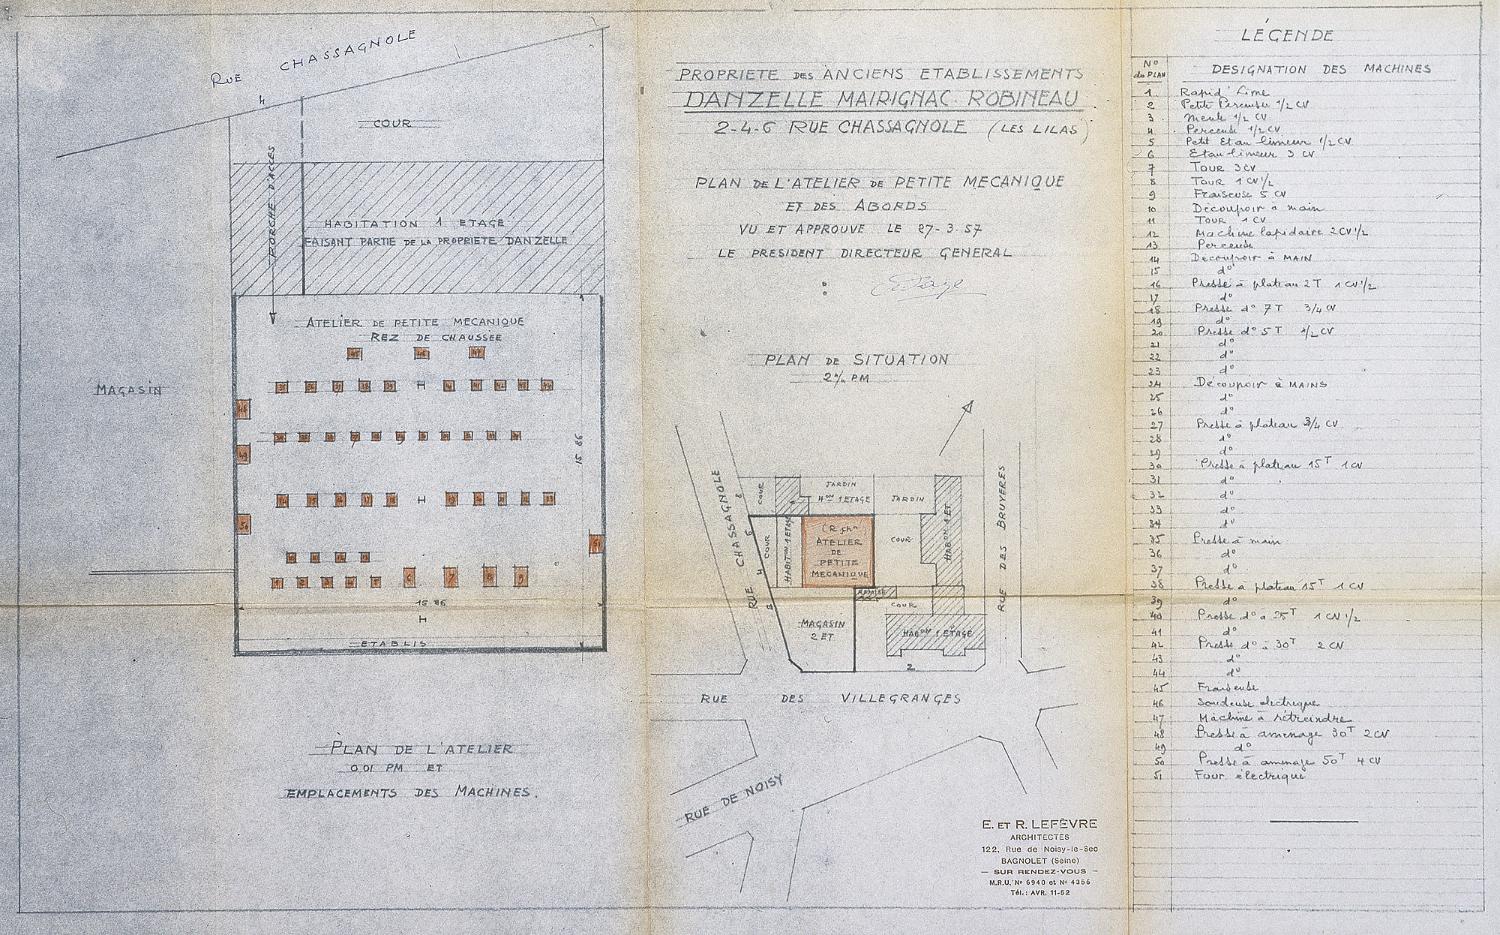 RUE CHASSAGNOLE
4
COUR
PORCHE D'ACCES
HABITATION 1 ETAGE
FAISANT PARTIE DE LA PROPRIETE DANZELLE
ATELIER DE PETITE MECANIQUE
REZ DE CHAUSSÉE
MAGASIN
H
H
15 86
15 86
H
ETABLIS
PLAN DE L'ATELIER
0.01 PM ET
EMPLACEMENTS DES MACHINES.
PROPRIETE DES ANCIENS ETABLISSEMENTS
DANZELLE MAIRIGNAC ROBINEAU
2-4-6 RUE CHASSAGNOLE (LES LILAS)
PLAN DE L'ATELIER DE PETITE MECANIQUE
ET DES ABORDS
VU ET APPROUVE LE 27-3-57
LE PRESIDENT DIRECTEUR GENERAL
PLAN DE SITUATION
2% PM
RUE CHASSAGNOLE
8
6
4
2
COUR
JARDIN
1 ETAGE
JARDIN
COUR
HABITon 1 ETAGE
ATELIER
DE
PETITE
MECANIQUE
COUR
HABon 1 ET
RUE DES BRUYERES
COUR
MAGASIN
2 ET
HABon 1 ETAGE
2
RUE DES VILLEGRANGES
RUE DE NOISY
E. ET R. LEFÈVRE
ARCHITECTES
122, Rue de Noisy-le-Sec
BAGNOLET (Seine)
— SUR RENDEZ-VOUS —
M.R.U. Nº 6940 et Nº 4356
Tél. : AVR. 11-52
LÉGENDE
Nº du PLAN DESIGNATION DES MACHINES
1 Rapid' Lime
2 Petite Perceuse 1/2 CV
3 Meule 1/2 CV
4 Perceuse 1/2 CV
5 Petit Etau limeur 1/2 CV
6 Etau limeur 3 CV
7 TOUR 3 CV
8 TOUR 1 CV 1/2
9 Fraiseuse 5 CV
10 Découpoir à main
11 TOUR 1 CV
12 Machine lapidaire 2 CV 1/2
13 Perceuse
14 Découpoir à MAIN
15 dº
16 Presse à plateau 2 T 1 CV 1/2
17 dº
18 Presse dº 7 T 3/4 CV
19 dº
20 Presse dº 5 T 1/2 CV
21 dº
22 dº
23 dº
24 Découpoir à MAINS
25 dº
26 dº
27 Presse à plateau 3/4 CV
28 dº
29 dº
30 Presse à plateau 15 T 1 CV
31 dº
32 dº
33 dº
34 dº
35 Presse à main
36 dº
37 dº
38 Presse à plateau 15 T 1 CV
39 dº
40 Presse dº à 25 T 1 CV 1/2
41 dº
42 Presse dº à 30 T 2 CV
43 dº
44 dº
45 Fraiseuse
46 Soudeuse electrique
47 Machine à rétreindre
48 Presse à amenage 30 T 2 CV
49 dº
50 Presse à amenage 50 T 4 CV
51 Four électrique